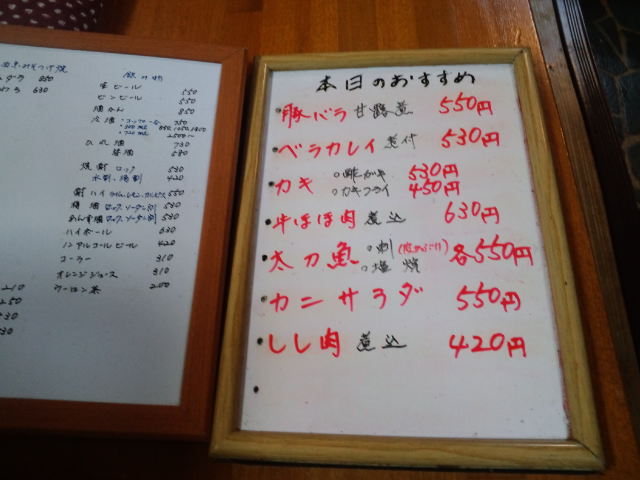 ダラ 650
630
生ビール 550
ビンビール 550
酒かん 350
冷酒
2500〜
ひれ酒 730
580
焼酎 ロック 530
水割、湯割 420
酎ハイ 550
梅酒 ロック、ソーダー割 530
あんず酒 ロック、ソーダー割 530
ハイボール 630
ノンアルコールビール 420
コーラー 310
オレンジジュース 310
ウーロン茶 200
210
250
530
530
本日のおすすめ
豚バラ 甘露煮 550円
ベラカレイ 煮付 530円
カキ ○酢ガキ 530円
○カキフライ 450円
牛ほほ肉 煮込 630円
太刀魚 ○刺 各550円
○塩焼
カニサラダ 550円
しし肉 煮込 420円